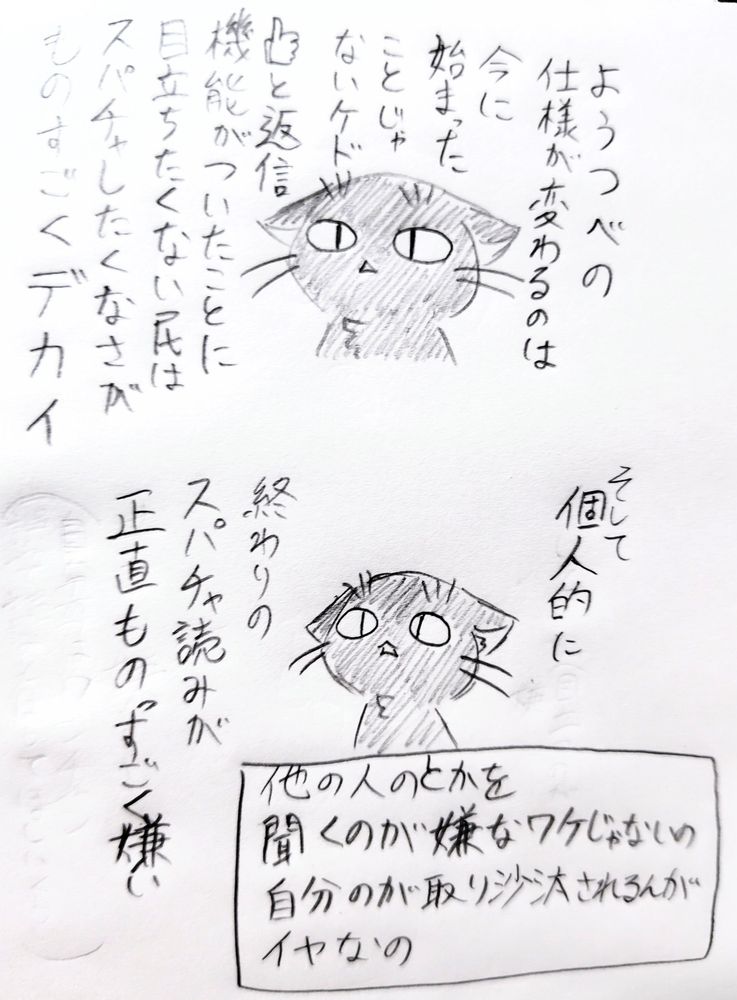 ようつべの
仕様が変わるのは
今に
始まった
ことじゃ
ないケド
👍と返信
機能がついたことに
目立ちたくない民は
スパチャしたくなさが
ものすごくデカイ
そして
個人的に
終わりの
スパチャ読みが
正直ものっすごく嫌い
他の人のとかを
聞くのが嫌なワケじゃないの
自分のが取り沙汰されるんが
イヤなの